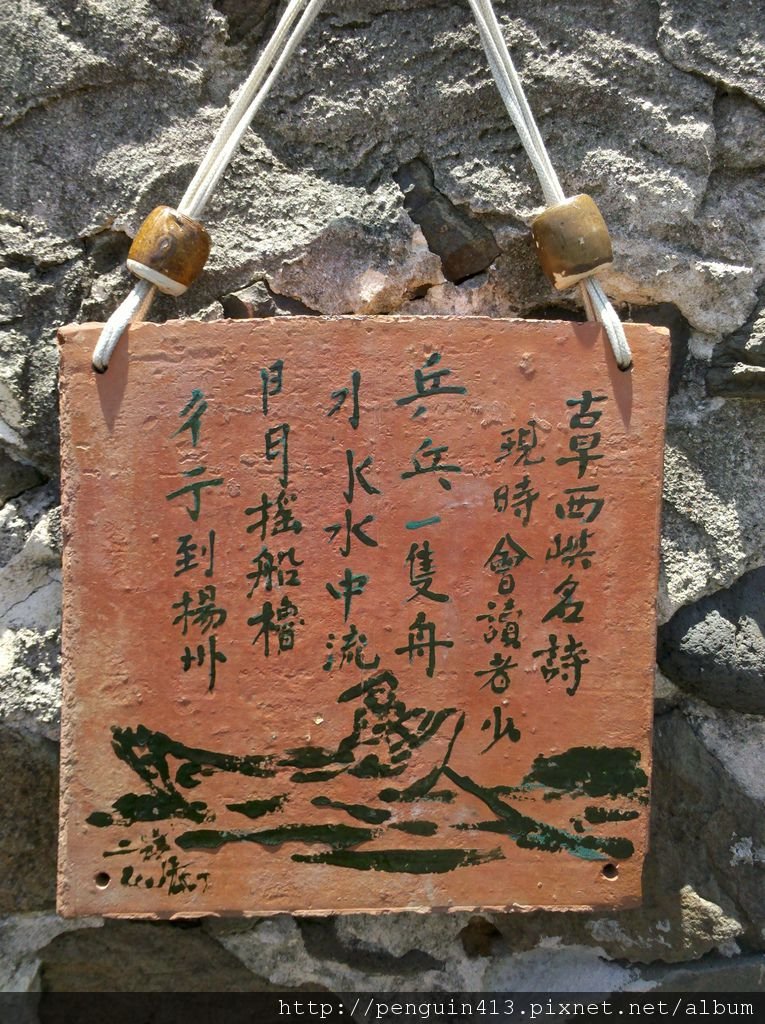 古早西嶼名詩
現時會讀者少
乒乓一隻舟
水中流
月搖船櫓
彳亍到楊州
二崁
http://penguin413.pixnet.net/album